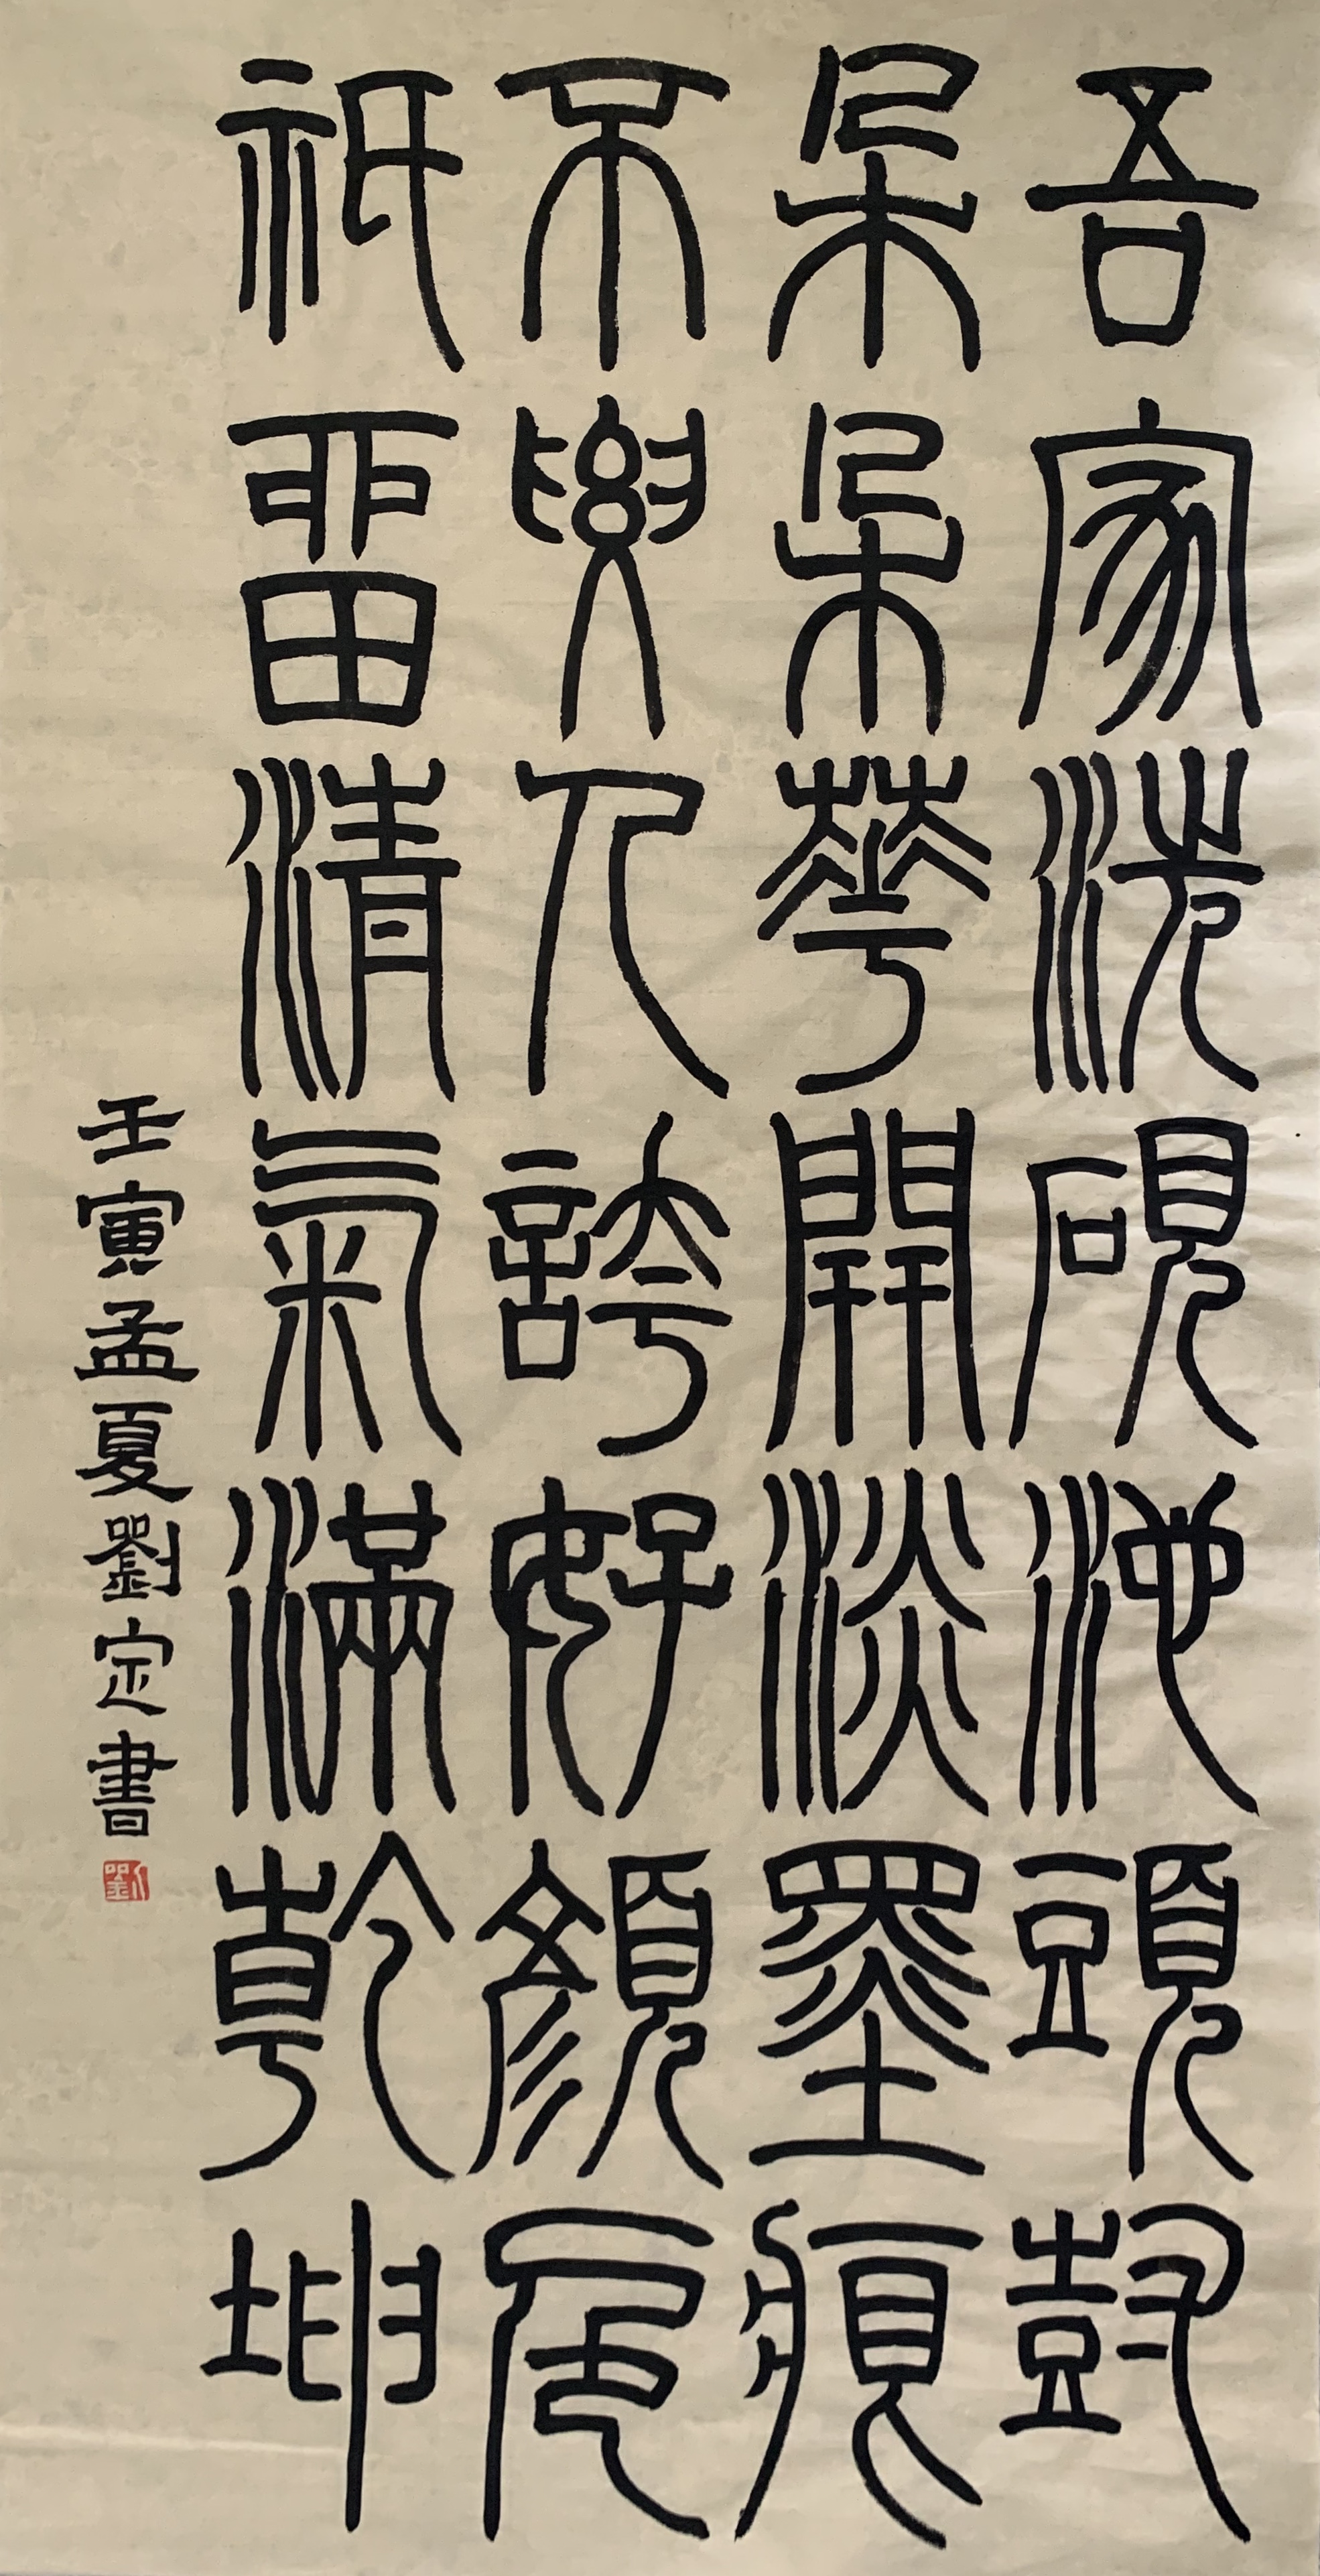 吾家洗硯池頭尌
朵朵華開淡墨痕
不要人誇好顏色
祇畱清氣滿乾坤
壬寅孟夏劉定書
劉